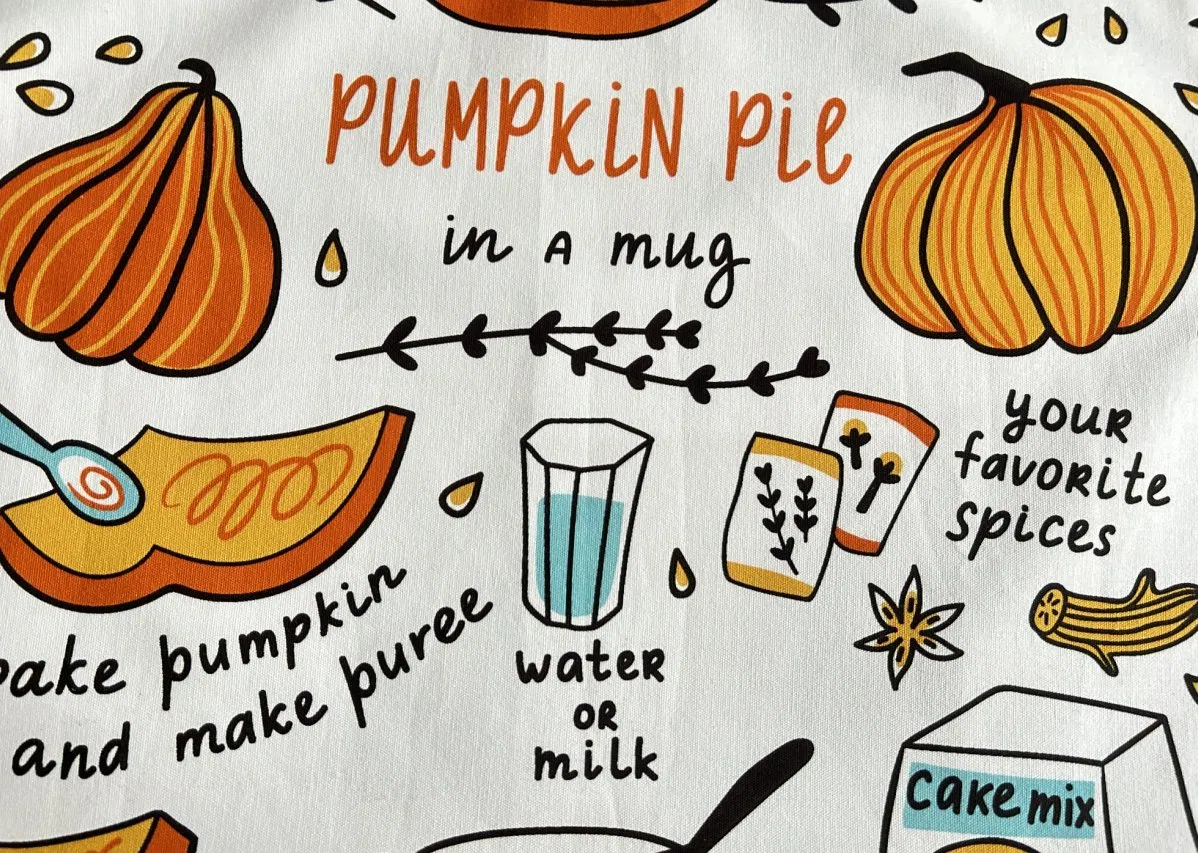 PUMPKIN PIE
in A mug
your
favorite
spices
bake pumpkin
and make puree
water
OR
milk
cake mix